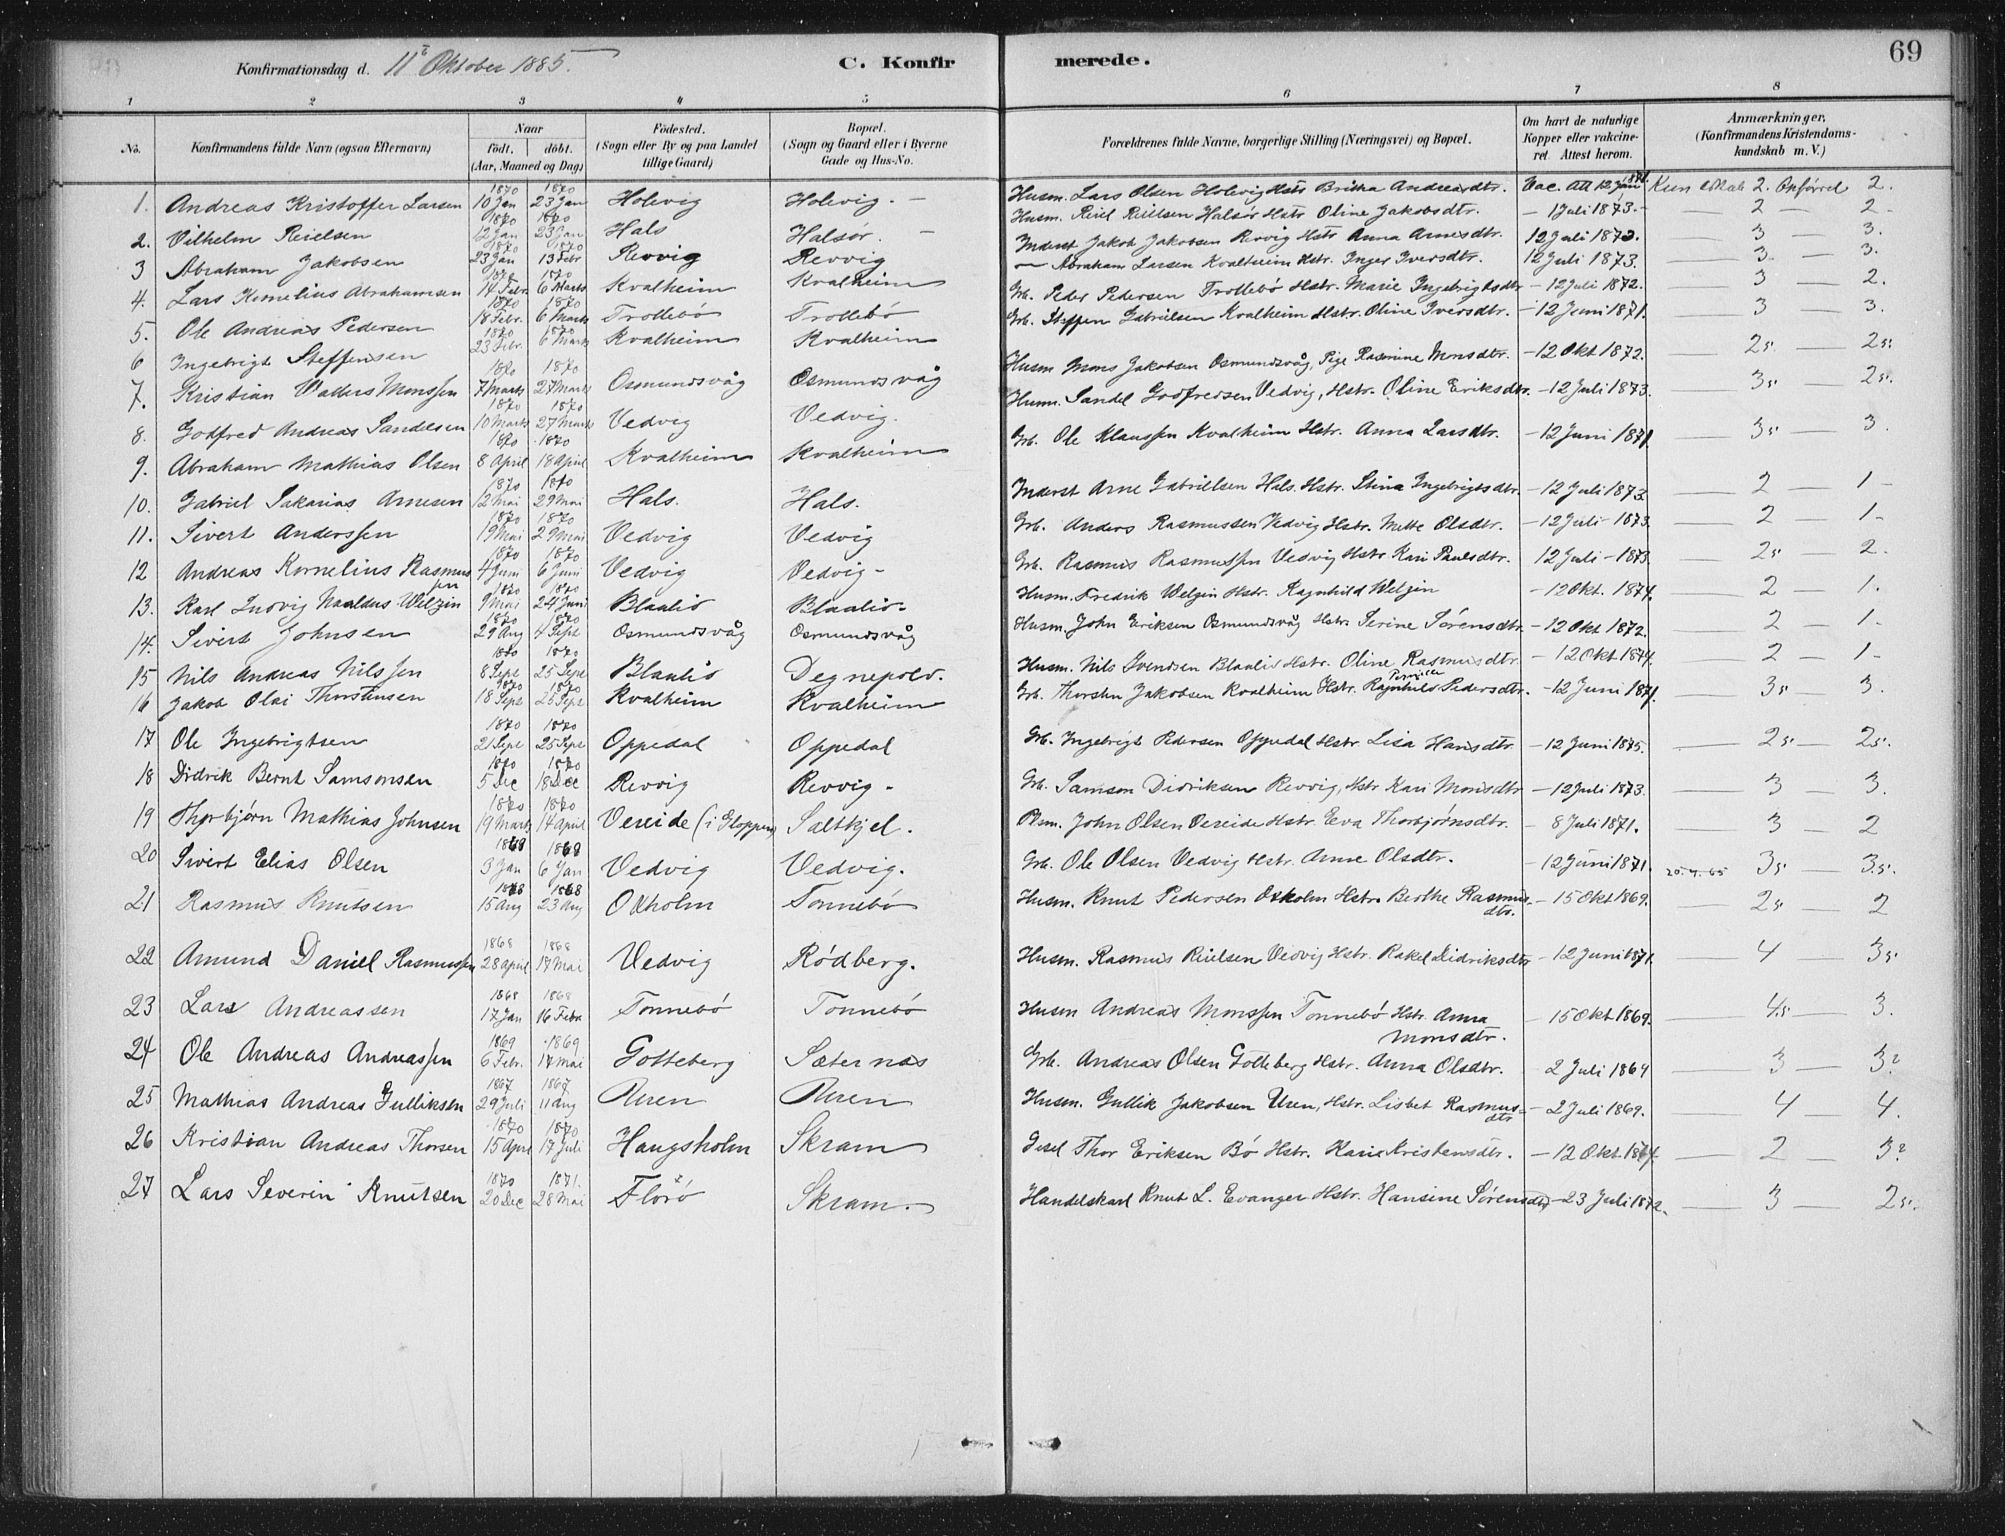 69
Konfirmationsdag d. 11te Oktober 1885. C. Konfirmerede.
1 2 3 4 5 6 7 8
No. Konfirmandens fulde Navn (ogsaa Efternavn) Naar födt. döbt. (Aar, Maaned og Dag) Födested. (Sogn eller By og paa Landet tillige Gaard) Bopæl. (Sogn og Gaard eller i Byerne Gade og Hus-No. Forældrenes fulde Navne, borgerlige Stilling (Næringsvei) og Bopæl. Om havt de naturlige Kopper eller vakcineret. Attest herom. Anmærkninger, (Konfirmandens Kristendomskundskab m. V.)
1. Andreas Kristoffer Larsen 1870 10 Jan 1870 23 Jan Holevig Holevig. — Husm. Lars Olsen Holevig Hstr Britha Andreasdtr. Vac. Att 12 Juni 1871. Kundskab 2. Opförsel 2.
2. Vilhelm Reielsen 1870 12 Jan 1870 23 Jan Hals Halsør. — Husm. Reiel Reielsen Halsør Hstr Oline Jakobsdtr. — 1 Juli 1873. — 2 — 2.
3 Abraham Jakobsen 1870 23 Jan 1870 13 Febr Revvig Revvig Inderst Jakob Jakobsen Revvig Hstr Anna Arnesdtr. 12 Juli 1873. — 3 — 3.
4. Lars Kornelius Abrahamsen 1870 14 Febr. 1870 6 Marts Kvalheim Kvalheim — Abraham Larsen Kvalheim Hstr. Inger Iversdtr. 12 Juli 1873. — 3 — 3.
5. Ole Andreas Pedersen 1870 18 Febr. 1870 6 Marts Trollebö Trollebö Grb. Peder Pedersen Trollebö Hstr. Marie Ingebrigtsdtr — 12 Juli 1872. — 3 — 2.
6 Ingebrigt Steffensen 1870 23 Febr. 1870 6 Marts Kvalheim Kvalheim Grb. Steffen Gabrielsen Kvalheim Hstr. Oline Iversdtr. — 12 Juni 1871. 3 3.
7. Kristian Valders Monssen 1870 7 Marts 1870 27 Marts Osmundsvåg Osmundsvåg Husm Mons Jakobsen Osmundsvåg, Pige Rasmine Monsdtr. — 12 Okt 1872. 2₅. — 2₅.
8. Godfred Andreas Sandelsen 1870 10 Marts 1870 27 Marts Vedvig Vedvig. Husm. Sandel Godfredsen Vedvig, Hstr. Oline Eriksdtr. — 12 Juli 1873. 3₅ — 2₅.
9. Abraham Mathias Olsen 1870 8 April 1870 18 April Kvalheim Kvalheim Grb. Ole Klaussen Kvalheim Hstr. Anna Larsdtr. — 12 Juni 1871. — 3₅ — 3.
10. Gabriel Sakarias Arnesen 1870 12 Mai 1870 29 Mai Hals. Hals. Inderst Arne Gabrielsen Hals. Hstr. Stina Ingebrigtsdtr. — 12 Juli 1873. — 2 — 1 -
11. Sivert Anderssen 1870 19 Mai 1870 29 Mai Vedvig Vedvig Grb. Anders Rasmussen Vedvig Hstr. Mette Olsdtr. — 12 Juli 1873. — 2 1-
12 Andreas Kornelius Rasmussen 1870 4 Juni 1870 6 Juni Vedvig Vedvig - Grb. Rasmus Rasmussen Vedvig Hstr Kari Paulsdtr. 12 Juli — 1873. — 2₅ — 2.
13. Karl Ludvig Welzin 1870 9 Mai 1870 24 Juni Blaalid Blaalid. Husm. Fredrik Welzin Hstr. Ragnhild Welzin — 12 Okt. 1874. — 2 — 1.
14. Sivert Johnsen 1870 29 Aug 1870 4 Sept Osmundsvåg Osmundsvåg Husm. John Eriksen Osmundsvåg Hstr Serine Sörensdtr — 12 Okt 1872. — 2 — 1-
15 Nils Andreas Nilssen 1870 8 Sept 1870 25 Sept Blaalid Degnepold. Husm. Nils Svendsen Blaalid Hstr. Oline Rasmusdtr. — 12 Okt 1874. — 2 — 1-
16 Jakob Olai Thorstensen 1870 18 Sept 1870 25 Sept Kvalheim Kvalheim Grb. Thorsten Jakobsen Kvalheim Hstr. Ragnhild Pedersdtr. — 12 Juni 1871. — 3₅ — 3.
17 Ole Ingebrigtsen 1870 21 Sept 1870 25 Sept Oppedal Oppedal Grb. Ingebrigt Pedersen Oppedal Hstr. Lisa Hansdtr — 12 Juni 1875. — 2₅ — 2₅.
18 Didrik Bernt Samsonsen 1870 5 Dec 1870 18 Dec Revvig Revvig - Grb. Samson Didriksen Revvig, Hstr Kari Monsdtr — 12 Juli 1873. — 3 — 3.
19 Thorbjørn Mathias Johnsen 1870 19 Marts 1870 14 April Vereide (i Gloppen) Saltkjel. Plsm. John Olsen Vereide Hstr Eva Thorbjørnsdtr. — 8 Juli 1871. — 3 — 2
20 Sivert Elias Olsen 3 Jan 6 Jan Vedvig Vedvig. Grb. Ole Olsen Vedvig Hstr. Anne Olsdtr. — 12 Juni 1871. 3₅ — 3₅.
21 Rasmus Knutsen 1868 15 Aug 1868 23 Aug Oxholm Tonnebö Husm. Knut Pedersen Oxholm Hstr. Berthe Rasmusdtr. — 15 Okt 1869. — 2₅ — 2
22 Amund Daniel Rasmussen 1868 28 April 1868 17 Mai Vedvig Rödberg. Husm. Rasmus Reielsen Vedvig Hstr. Rakel Didriksdtr — 12 Juni 1871. — 4 — 3₅
23 Lars Andreassen 1868 17 Jan 1868 16 Febr Tonnebö Tonnebö Husm Andreas Monssen Tonnebö Hstr. Anna Monsdtr. — 15 Okt 1869. — 4₅ — 3.
24 Ole Andreas Andreassen 1869 6 Febr. 1869 17 Mai Gotteberg Sæternæs Grb. Andreas Olsen Gotteberg Hstr. Anna Olsdtr. — 2 Juli 1869 — 3 — 3?
25 Mathias Andreas Gulliksen 1867 29 Juli 1867 11 Aug Uren Uren Husm. Gullik Jakobsen Uren, Hstr. Lisbet Rasmusdtr — 2 Juli 1869. — 4 4.
26 Kristian Andreas Thorsen 1870 15 April 1870 17 Juli Haugsholm Skram Thor Eriksen Bö Hstr. Karie Kristensdtr. — 12 Okt 1874. — 2 — 3?
27 Lars Severin Knutsen 1870 20 Dec 1871. 28 Mai Florö Skram. Handelskarl Knut L. Evanger Hstr. Hansine Sörensdtr — 23 Juli 1872. — 3 — 2₅.